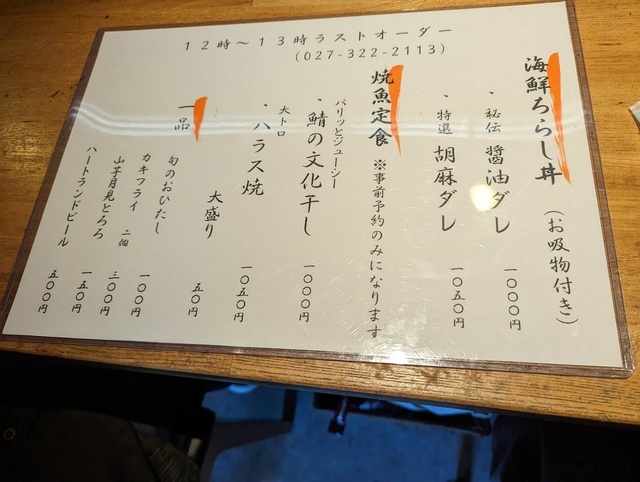 12時～13時ラストオーダー
(027-322-2113)
海鮮ちらし丼 （お吸物付き）
・秘伝 醤油ダレ 一〇〇〇円
・特選 胡麻ダレ 一〇五〇円
焼魚定食 ※事前予約のみになります
パリッとジューシー
・鯖の文化干し 一〇〇〇円
大トロ
・ハラス焼 一〇五〇円
一品
大盛り 五〇円
旬のおひたし 一〇〇円
カキフライ 二個 三〇〇円
山芋月見とろろ 一五〇円
ハートランドビール 五〇〇円